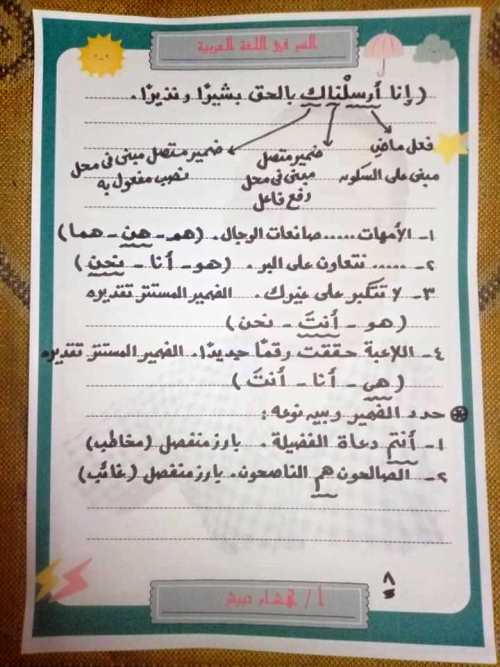 السر في اللغة العربية
( إنا أرسلْناك بالحق بشيرًا ونذيرًا.
فعل ماضٍ
مبني على السكون
ضمير متصل
مبنى فى محل
رفع فاعل
ضمير متصل مبنى فى محل
نصب مفعول به
١- الأمهات ..... صانعات الرجال. (هم - هن - هما)
٢- ..... نتعاون على البر. (هو - أنا - نحن)
٣- لا تتكبر على غيرك. الضمير المستتر تقديره
(هو - أنتَ - نحن)
٤- اللاعبة حققت رقمًا جديدًا. الضمير المستتر تقديره
(هى - أنا - أنتَ)
حدد الضمير وبين نوعه:
١- أنتم دعاة الفضيلة. بارز منفصل (مخاطب)
٢- الصالحون هم الناصحون. بارز منفصل (غائب)
٨
أ /